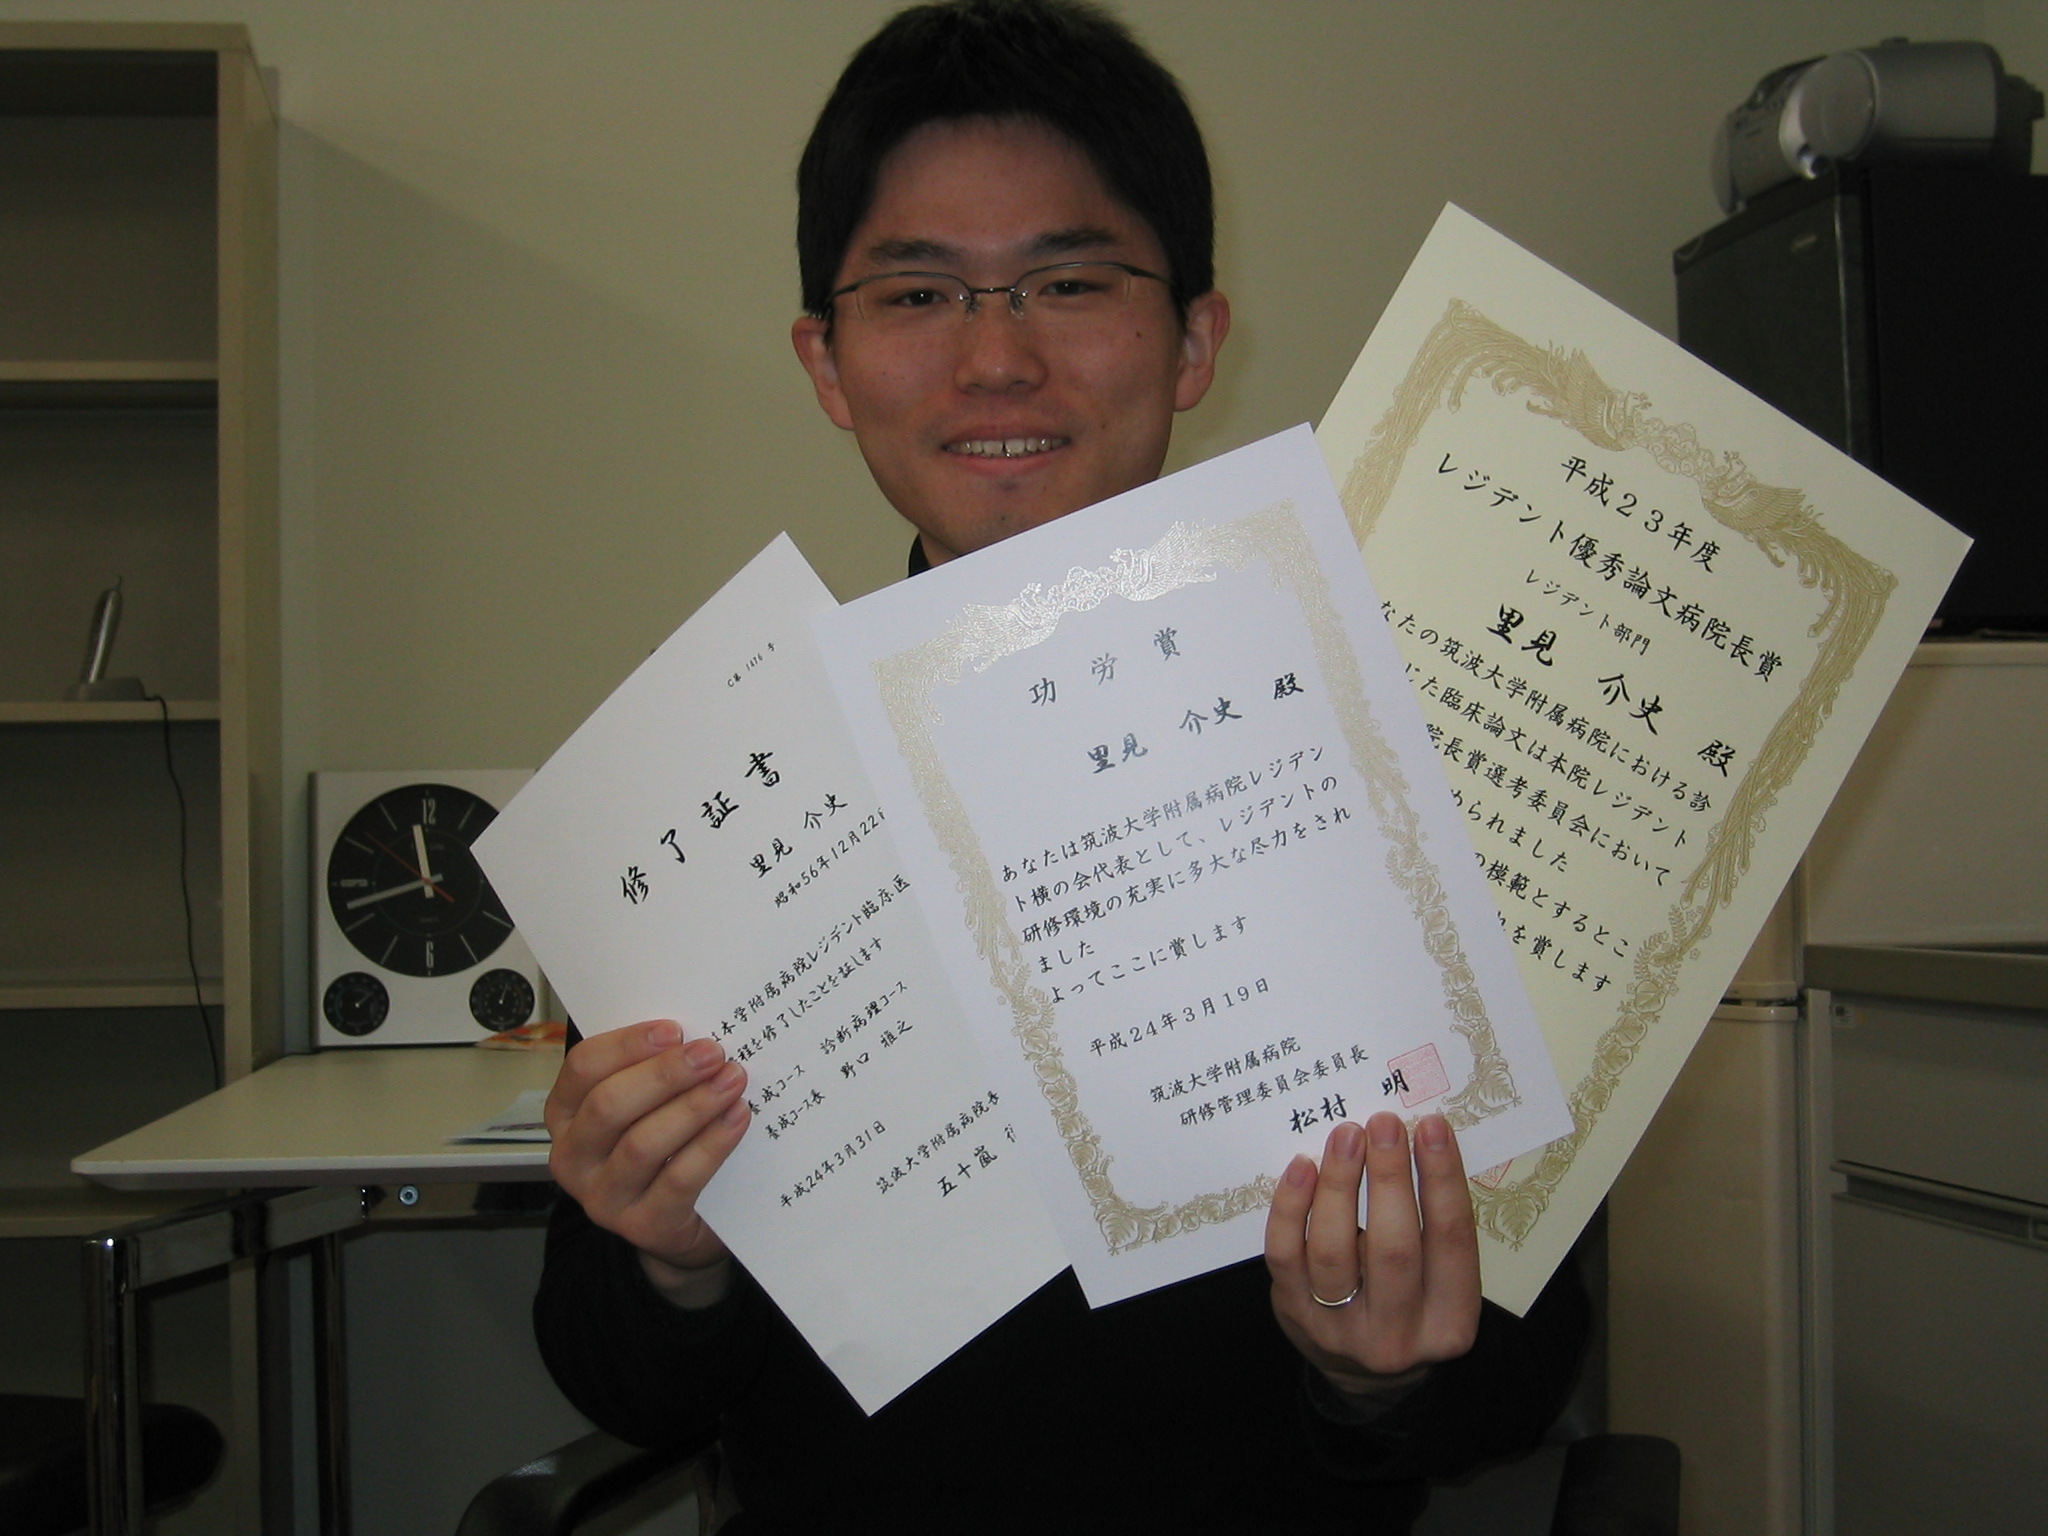 C第 1476 号
修了証書
里見 介史
昭和56年12月22日
本学附属病院レジデント臨床医
程を修了したことを証します
養成コース 診断病理コース
養成コース長 野口 雅之
平成24年3月31日
筑波大学附属病院長
五十嵐
功労賞
里見 介史 殿
あなたは筑波大学附属病院レジデン
ト横の会代表として、レジデントの
研修環境の充実に多大な尽力をされ
ました
よってここに賞します
平成24年3月19日
筑波大学附属病院
研修管理委員会委員長
松村 明
平成23年度
レジデント優秀論文病院長賞
レジデント部門
里見 介史 殿
なたの筑波大学附属病院における診
じた臨床論文は本院レジデント
院長賞選考委員会において
められました
の模範とするとこ
を賞します
12
6